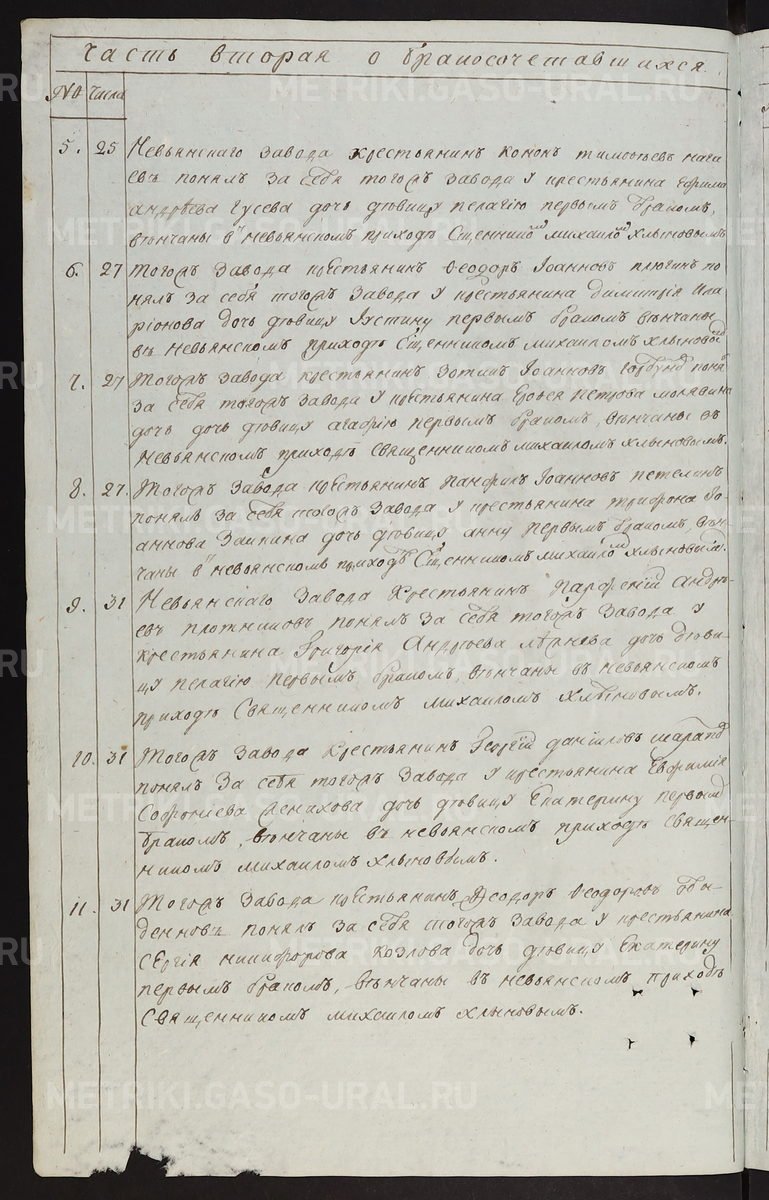 Часть вторая о бракосочетавшихся.
No Числа
5. 25 Невьянскаго завода крестьянинъ Кононъ Тимофѣевъ Нага
евъ понялъ за себя тогожъ завода у крестьянина Ефима
Андрѣева Гусева дочь дѣвицу Пелагію первымъ бракомъ,
вѣнчаны в невьянскомъ приходѣ Сщенникомъ Михаиломъ Хлыновымъ
6. 27 Тогожъ завода крестьянинъ Феодоръ Іоанновъ Плюгинъ по
нялъ за себя тогожъ завода у крестьянина Димитрія Ила
ріонова дочь дѣвицу Іустину первымъ бракомъ вѣнчаны
въ невьянскомъ приходѣ Сщенникомъ Михаиломъ Хлыновымъ
7. 27 Тогожъ завода крестьянинъ Зотикъ Іоанновъ понялъ
за себя тогожъ завода у крестьянина Петрова
дочь дочь дѣвицу Агафію первымъ бракомъ, вѣнчаны въ
Невьянскомъ приходѣ священникомъ Михаиломъ Хлыновымъ.
8. 27. Тогожъ завода крестьянинъ Панфилъ Іоанновъ Петелинъ
понялъ за себя тогожъ завода у крестьянина Трифона Іо
аннова Заикина дочь дѣвицу Анну первымъ бракомъ, вѣн
чаны в невьянскомъ приходѣ Сщенникомъ Михаиломъ Хлыновымъ.
9. 31 Невьянскаго завода Крестьянинъ Парфеній Андрѣ-
евъ Плотниковъ понялъ за себя тогожъ завода у
крестьянина Григорія Андрѣева дочь дѣви-
цу Пелагію первымъ бракомъ, вѣнчаны въ невьянскомъ
приходѣ Священникомъ Михаиломъ Хлыновымъ.
10. 31 Тогожъ завода Крестьянинъ Георгій Даніиловъ
понялъ за себя тогожъ завода у крестьянина Евфимія
Софроніева дочь дѣвицу Екатерину первымъ
бракомъ, вѣнчаны въ невьянскомъ приходѣ Священ-
никомъ Михаиломъ Хлыновымъ.
11. 31 Тогожъ завода крестьянинъ Феодоръ Феодоровъ Обы-
денновъ понялъ за себя тогожъ завода у крестьянина
Сергія Никифорова Козлова дочь дѣвицу Екатерину
первымъ бракомъ, вѣнчаны въ невьянскомъ приходѣ
Священникомъ Михаиломъ Хлыновымъ.
METRIKI.GASO-URAL.RU